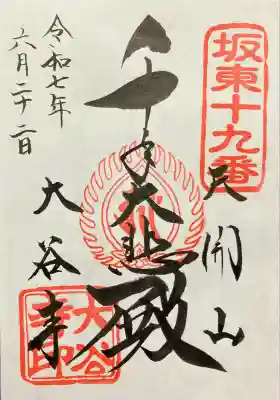 坂東十九番
天開山
千手大悲殿
大谷寺
大谷
寺印
令和七年
六月二十二日